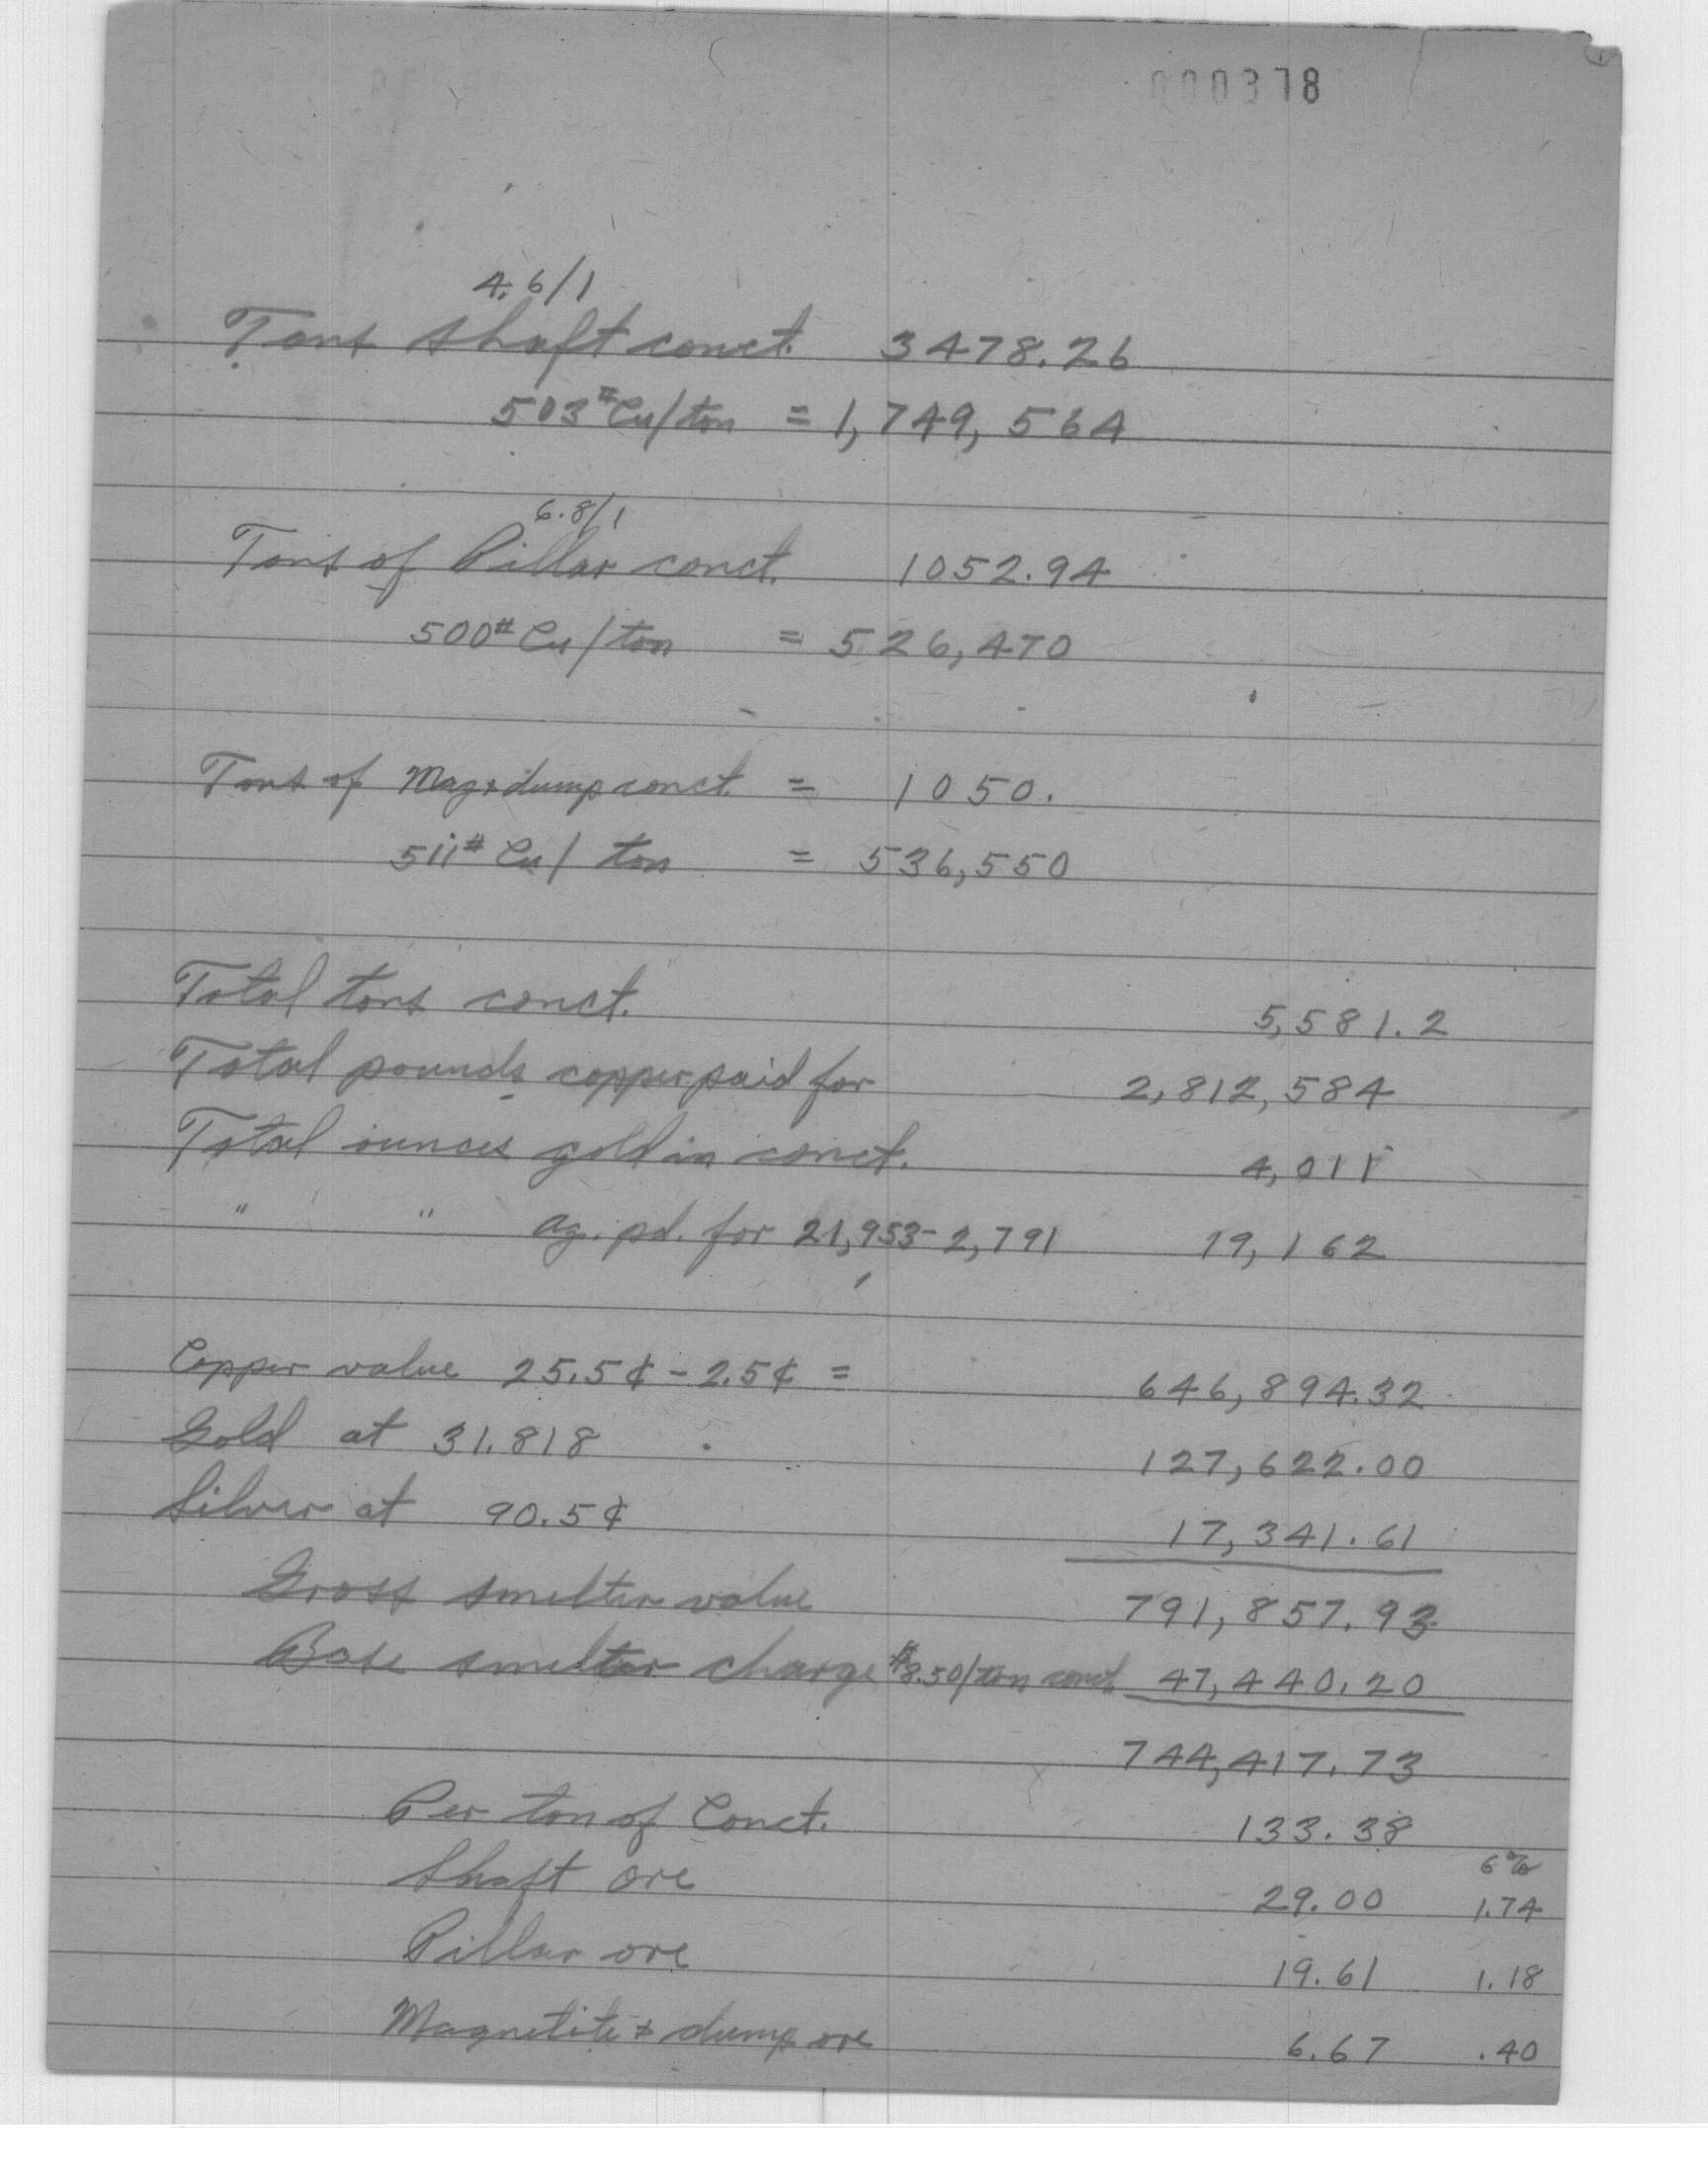 000378
4.6/1
Tons shaft conct. 3478.26
503# Cu/ton = 1,749,564
6.8/1
Tons of Pillar conct. 1052.94
500# Cu/ton = 526,470
Tons of Mag & dump conct = 1050.
511# Cu/ton = 536,550
Total tons conct. 5,581.2
Total pounds copper paid for 2,812,584
Total ounces gold in conct. 4,011
" " ag. pd. for 21,953-2,791 19,162
Copper value 25.5¢ - 2.5¢ = 646,894.32
Gold at 31.818 127,622.00
Silver at 90.5¢ 17,341.61
Gross smelter value 791,857.93
Base smelter charge $8.50/ton conct 47,440.20
744,417.73
Per ton of Conct. 133.38
6%
Shaft ore 29.00 1.74
Pillar ore 19.61 1.18
Magnetite & dump ore 6.67 .40